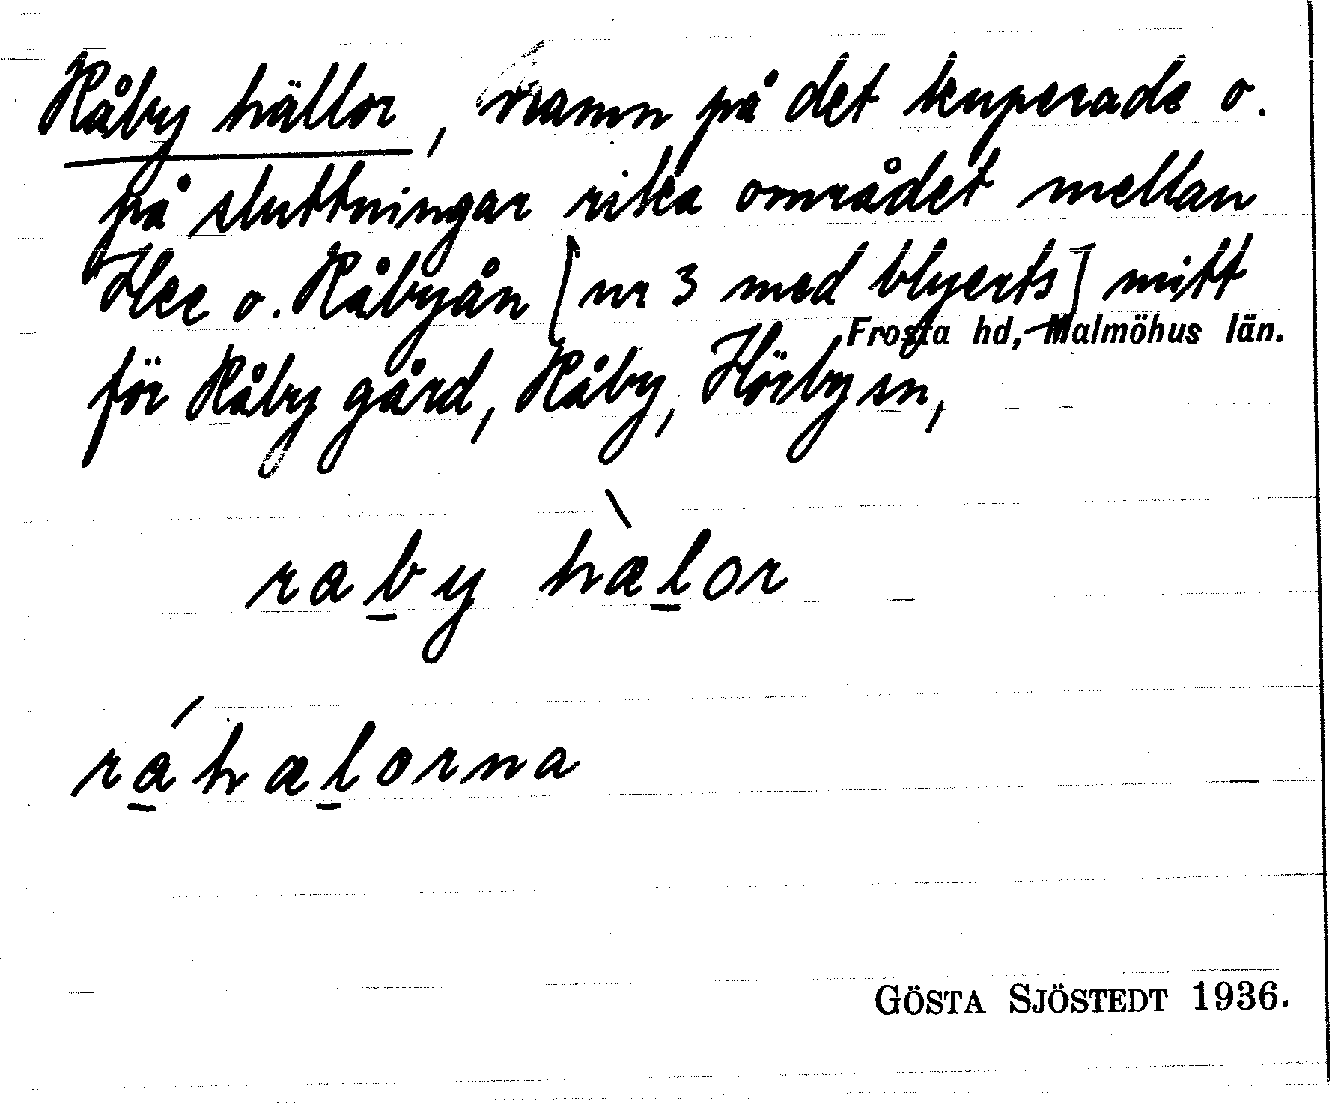 Råby hällor, namn på det kuperade o.
på sluttningar rika området mellan
Hee o. Råbyån [nr 3 med blyerts] mitt
Frosta hd, Malmöhus län.
för Råby gård, Råby, Hörby sn,
raby hàlor
ráhælorna
GÖSTA SJÖSTEDT 1936.